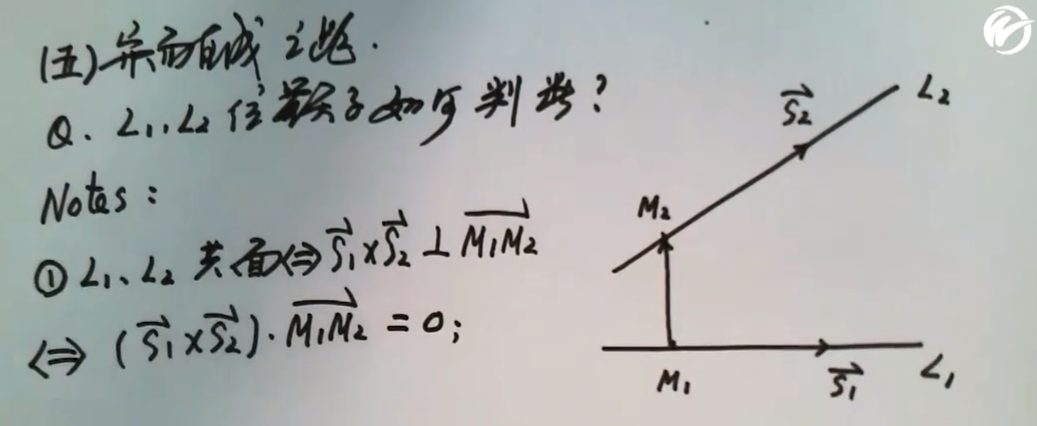 (五)异面直线之距.
Q. L₁、L₂ 位置关系如何判断?
Notes:
① L₁、L₂ 共面⇔S₁×S₂ ⊥ M₁M₂
⇔ (S₁×S₂)·M₁M₂ = 0;
S₂
L₂
M₂
M₁
S₁
L₁